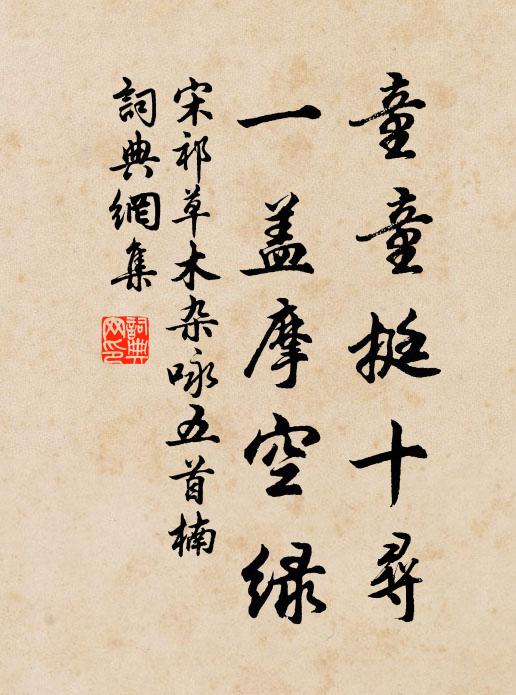 童童挺十尋
一盖摩空緑
宋祁草木杂咏五首楠
詞典網集
詞典網印